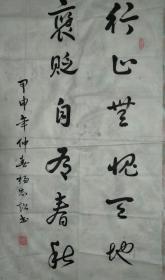 行止無愧天地
褒貶自有春秋
甲申年仲春杨忠书